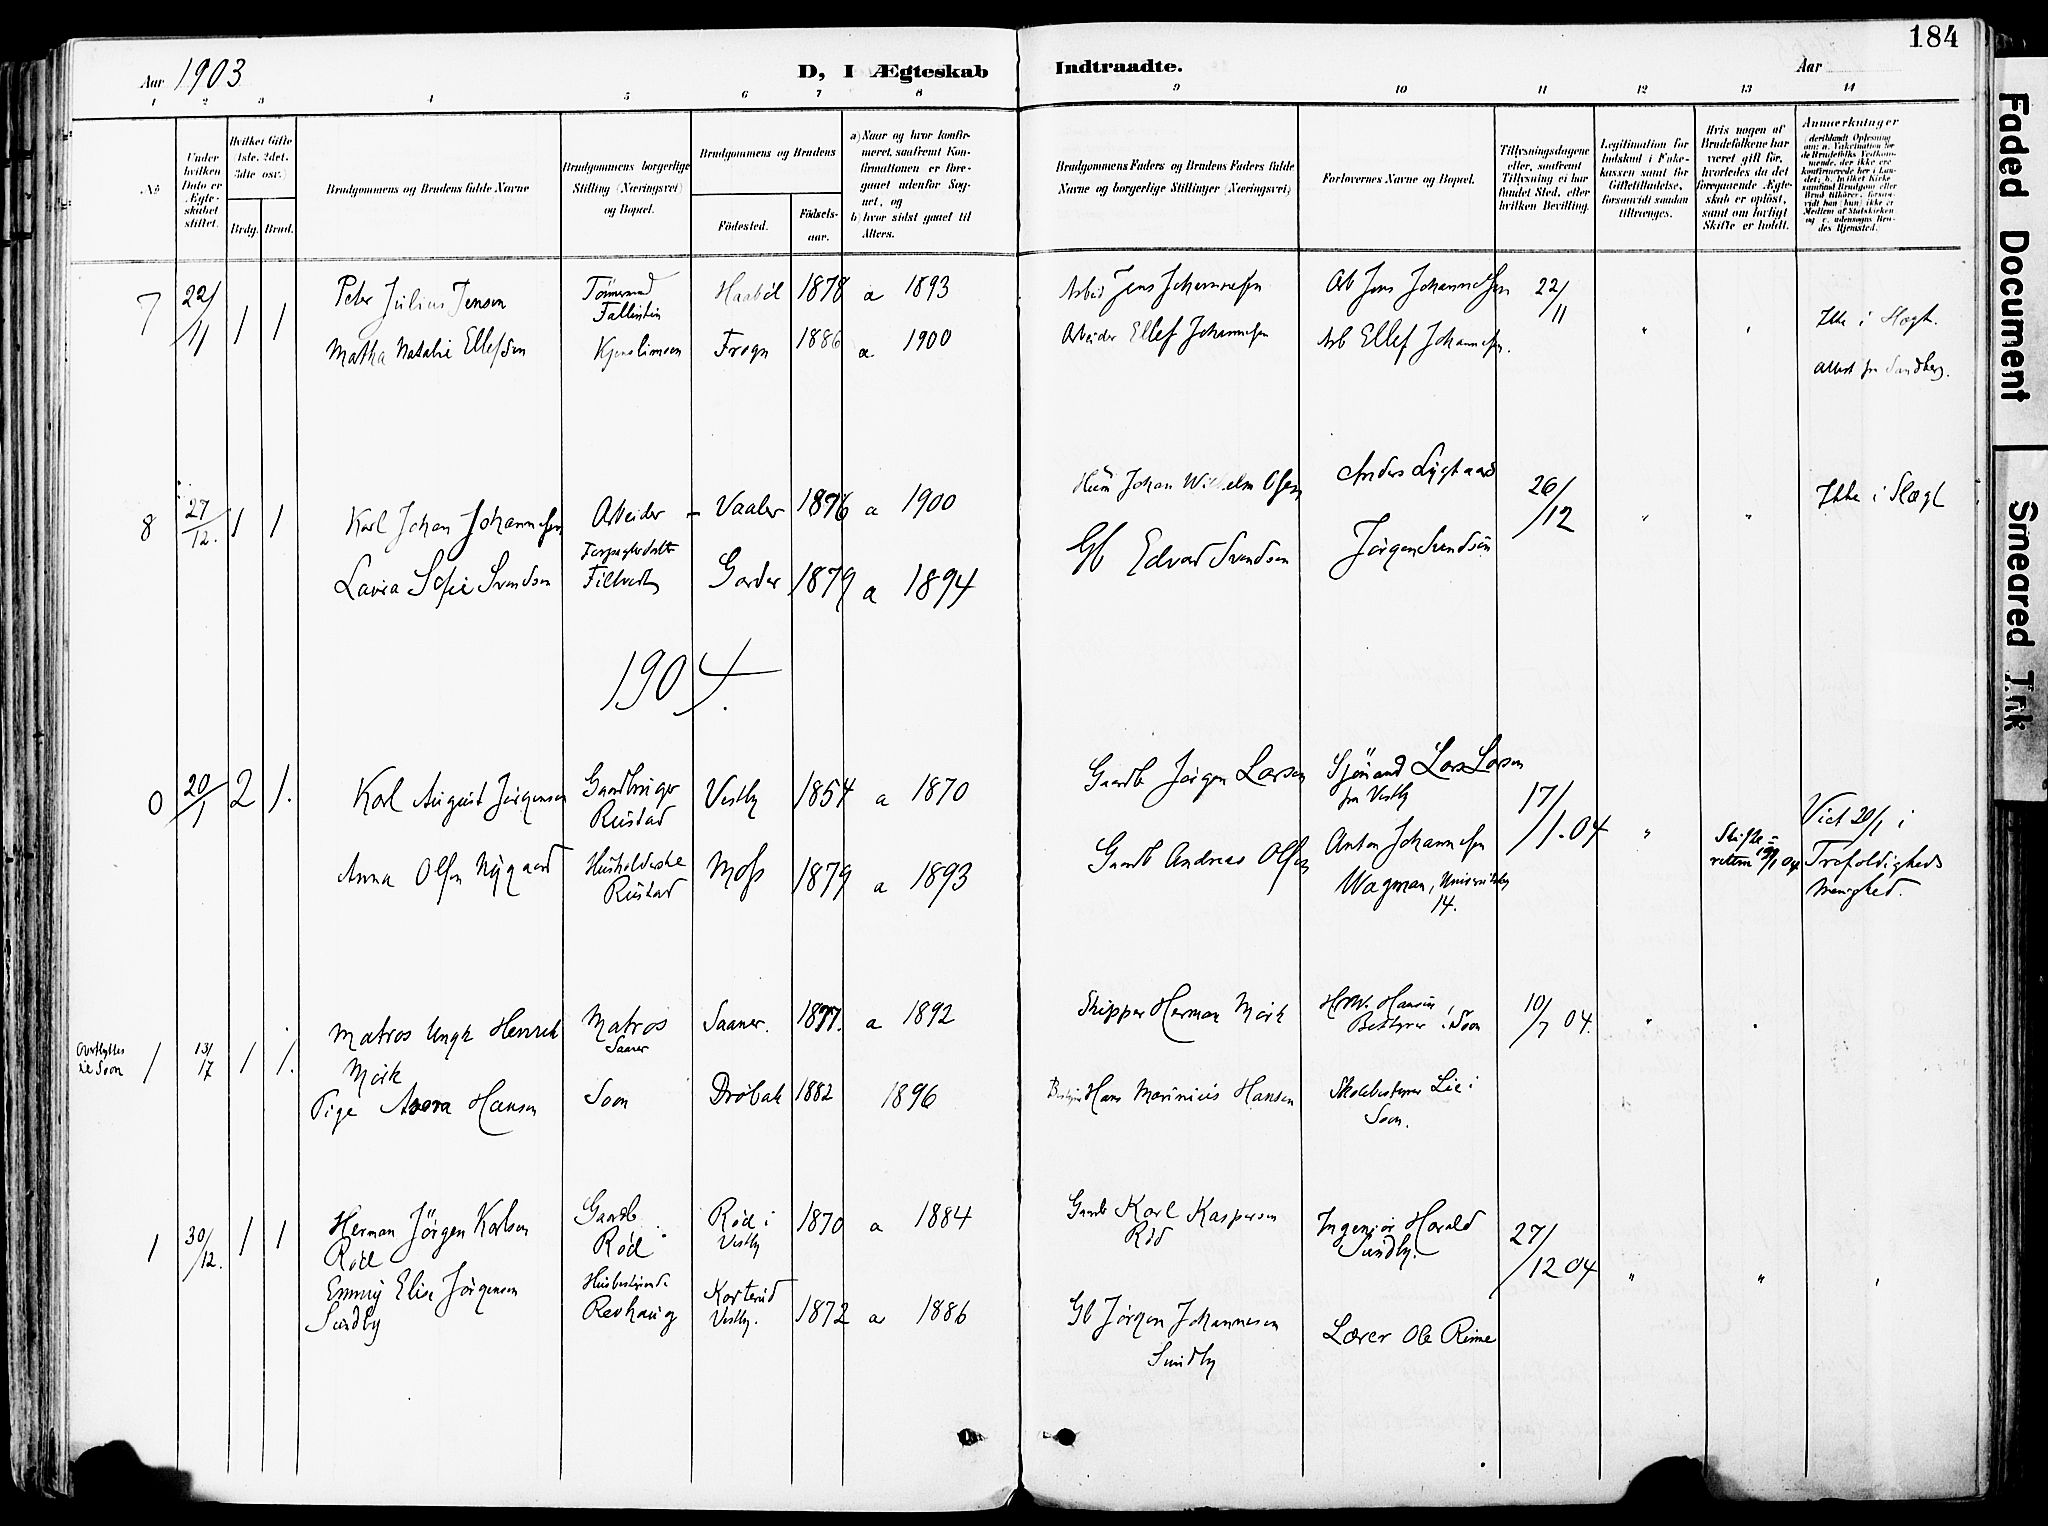 184
Aar 1903
D, I Ægteskab Indtraadte.
Aar
1 2 3 4 5 6 7 8 9 10 11 12 13 14
No
Under hvilken Dato er Ægteskabet stiftet.
Hvilket Gifte 1ste, 2det, 3dte osv.)
Brdg. Brud.
Brudgommens og Brudens fulde Navne
Brudgommens borgerlige Stilling (Næringsvei) og Bopæl.
Brudgommens og Brudens
Födested.
Födselsaar.
a) Naar og hvor konfirmeret, saafremt Konfirmationen er foregaaet udenfor Sognet, og
b) hvor sidst gaaet til Alters.
Brudgommens Faders og Brudens Faders fulde Navne og borgerlige Stillinger (Næringsvei)
Forlovernes Navne og Bopæl.
Tillysningsdagene eller, saafremt Tillysning ei har fundet Sted, efter hvilken Bevilling.
Legitimation for Indskud i Enkekassen samt for Giftetilladelse, forsaavidt saadan tiltrænges.
Hvis nogen af Brudefolkene har været gift før, hvorledes da det foregaaende Ægteskab er oplöst, samt om lovligt Skifte er holdt.
Anmerkninger
7 22/11 1 1 Peter Julius Jensen Haabøl 1878 a 1893 Arbeid Jens Johannessen Arb Jens Johannessen 22/11 " "
Ikke i Slægt.
Martha Natalie Ellefsen Frogn 1886 a 1900 Arbeider Ellef Johannesen Arb Ellef Johannesen.
8 27/12. 1 1 Karl Johan Johannessen Arbeider Vaaler 1876 a 1900 Husm Johan Wilhelm Olsen Anders Lygtaard 26/12 " "
Ikke i Slægt
Laura Sofie Svendsen Filtvedt Garder 1879 a 1894 Gb Edvard Svendsen Jørgen Svendsen
1904.
0 20/1 2 1. Karl August Jørgensen Gaardbruger Rustad Vestby 1854 a 1870 Gaardb Jørgen Larsen Sjömand Lars Larsen fra Vestby 17/1.04 " Skifte-
Viet 20/1 i Trefoldigheds Menighed.
Anna Olsen Nygaard Rustad Moss 1879 a 1893 Gaardb Andreas Olsen Anton Johannesen
Wagman, 14.
Overflyttes til Soon
1 13/17 1 1. Matros Unge Henrik Mørk Matros Saaner Saaner. 1877. a 1892 Skipper Herman Mørk H.W. Hansen Bestyrer i Soon 10/7 04. " "
Pige Aasora Hansen Soon Drøbak 1882 1896 Hans Marinius Hansen Skolebestyrer Lie i Soon.
1 30/12. 1 1 Herman Jörgen Karlsen Röd Gaardb Röd Rød i Vestby 1870 a 1884 Gaardb Karl Kaspersen Röd Ingeniør Harald Sundby. 27/12 04 " " "
Emmy Elise Jörgensen Sundby Revhaug Vestby. 1872 a 1886 Gb Jørgen Johannesen Sundby Lærer Ole Rime
Faded Document
Smeared Ink